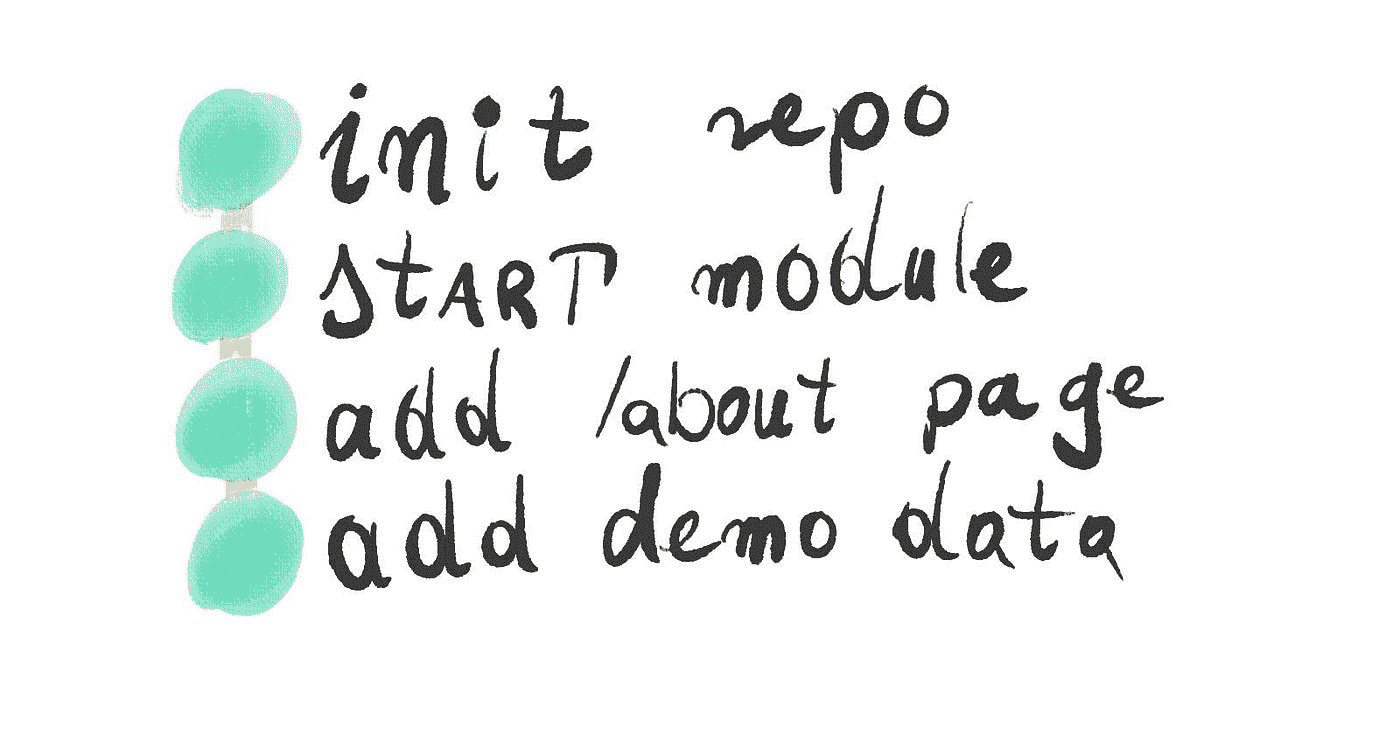 init repo
StART module
add /about page
add demo data